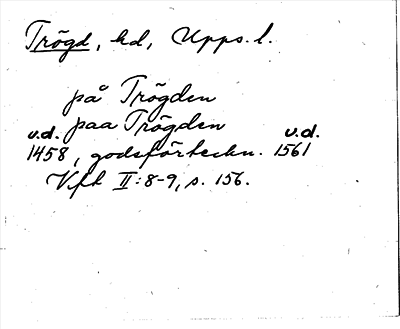 Trögd, hd, Upps. l.
på Trögden
u.d. paa Trögden u.d.
1458, godsförteckn. 1561
Vfk II:8-9, s. 156.